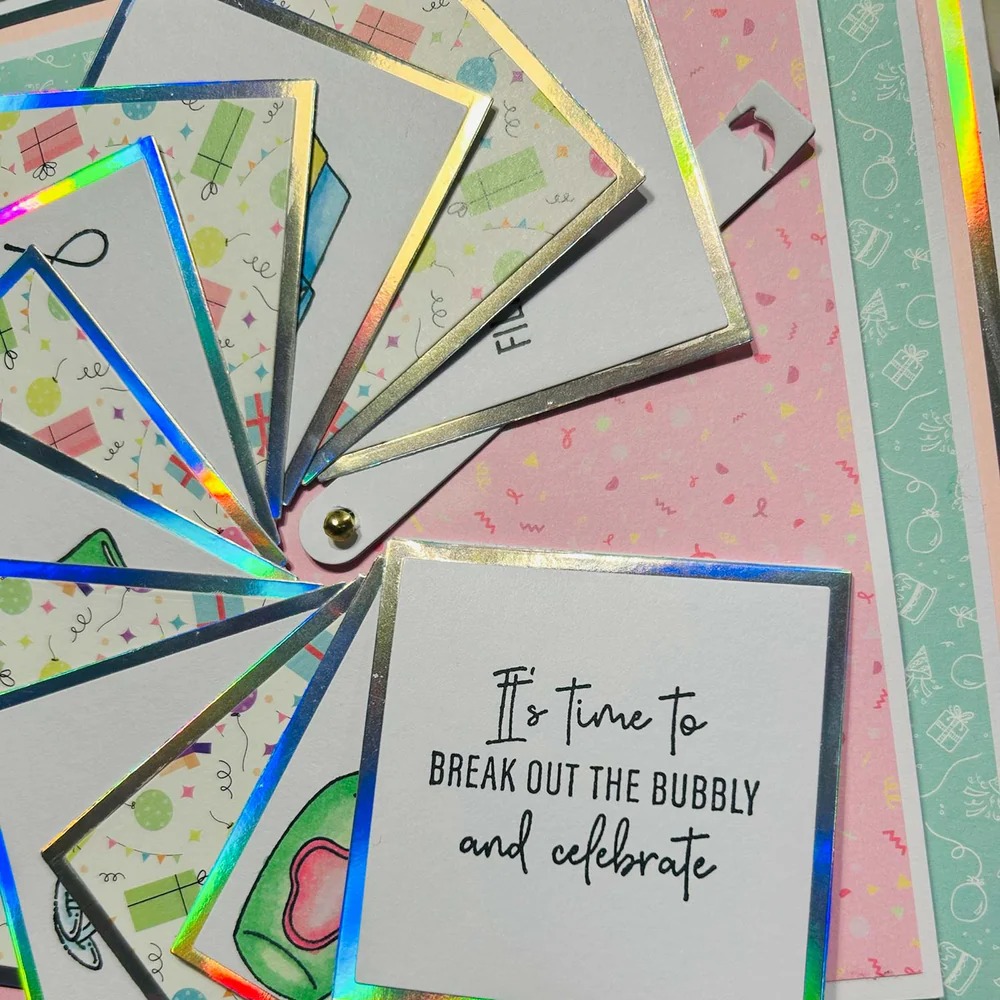 It's time to
BREAK OUT THE BUBBLY
and celebrate